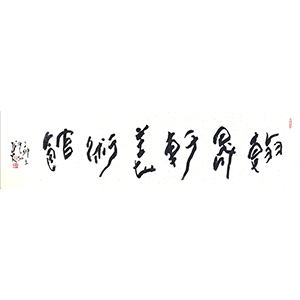 翰鼎軒美術館